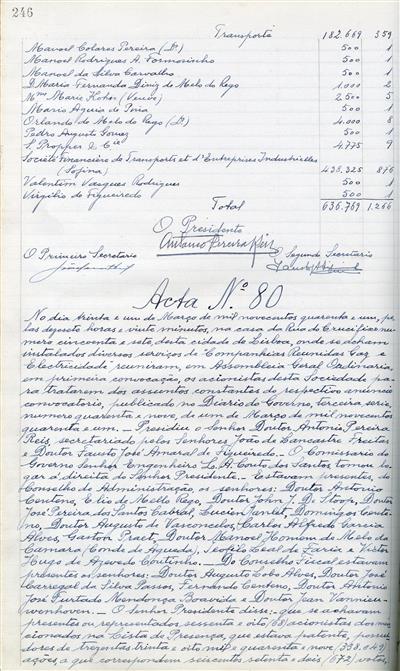 246
Transporte 182.669 359
Manoel Colares Pereira (Dr) 500 1
Manoel Rodrigues A. Formosinho 500 1
Manoel da Silva Carvalho 500 1
D. Maria Fernanda Diniz de Melo do Rego 1.000 2
Mme Marie Kohn (Veuve) 2.500 5
Mario Aguia de 500 1
Orlando de Melo do Rego (Dr) 4.000 8
Pedro Augusto Gomez 500 1
S. Propper & Cie 4.775 9
Société Financière de Transports et d'Entreprises Industrielles
(Sofina) 438.325 876
Valentim Vasques Rodrigues 500 1
Virgilio de Figueiredo 500 1
Total 636.769 1.266
O Presidente
Antonio Pereira Reis
O Primeiro Secretario O Segundo Secretario
Acta Nº 80
No dia trinta e um de Março de mil novecentos quarenta e um, pe-
las dezesete horas e vinte minutos, na casa da Rua do Crucifixo nu-
mero cincoenta e sete, desta cidade de Lisboa, onde se acham
instalados diversos serviços de Companhias Reunidas Gaz e
Electricidade reuniram, em Assembleia Geral Ordinaria,
em primeira convocação, os acionistas desta Sociedade pa-
ra tratarem dos assuntos constantes do respectivo anuncio
convocatorio, publicado no Diario do Governo, terceira serie,
numero quarenta e nove, de um de Março de mil novecentos
quarenta e um. — Presidiu o Senhor Doutor Antonio Pereira
Reis, secretariado pelos Senhores João de Lancastre Freitas
e Doutor Fausto José Amaral de Figueiredo. — O Comissario do
Governo Senhor Engenheiro L. A. Couto dos Santos tomou lo-
gar á direita do Senhor Presidente. — Estavam presentes, do
Conselho de Administração, os senhores: — Doutor Antonio
Centeno, Elio de Mello Rego, Doutor John T. D. Stoop, Doutor
José Pereira dos Santos Cabral, Lucien Hanlet, Domingos Cente-
no, Doutor Augusto de Vasconcelos, Carlos Alfredo Garcia
Alves, Gaston Praet, Doutor Manoel Homem de Melo da
Camara (Conde de Agueda), Teofilo Leal de Faria e Victor
Hugo de Azevedo Coutinho. — Do Conselho Fiscal estavam
presentes os senhores: — Doutor Augusto Lobo Alves, Doutor José
Carregal da Silva Passos, Fernando Centeno, Doutor Antonio
José Furtado Mendonça Boavida e Doutor Jean Vannieu-
wenhoven. — O Senhor Presidente disse: — que se achavam
presentes ou representados, sessenta e oito (68) acionistas dos men-
cionados na Lista de Presença, que estava patente, possui-
dores de trezentas trinta e oito mil e quarenta e nove (338.049)
ações a que correspondem seiscentos setenta e dois (672) votos,